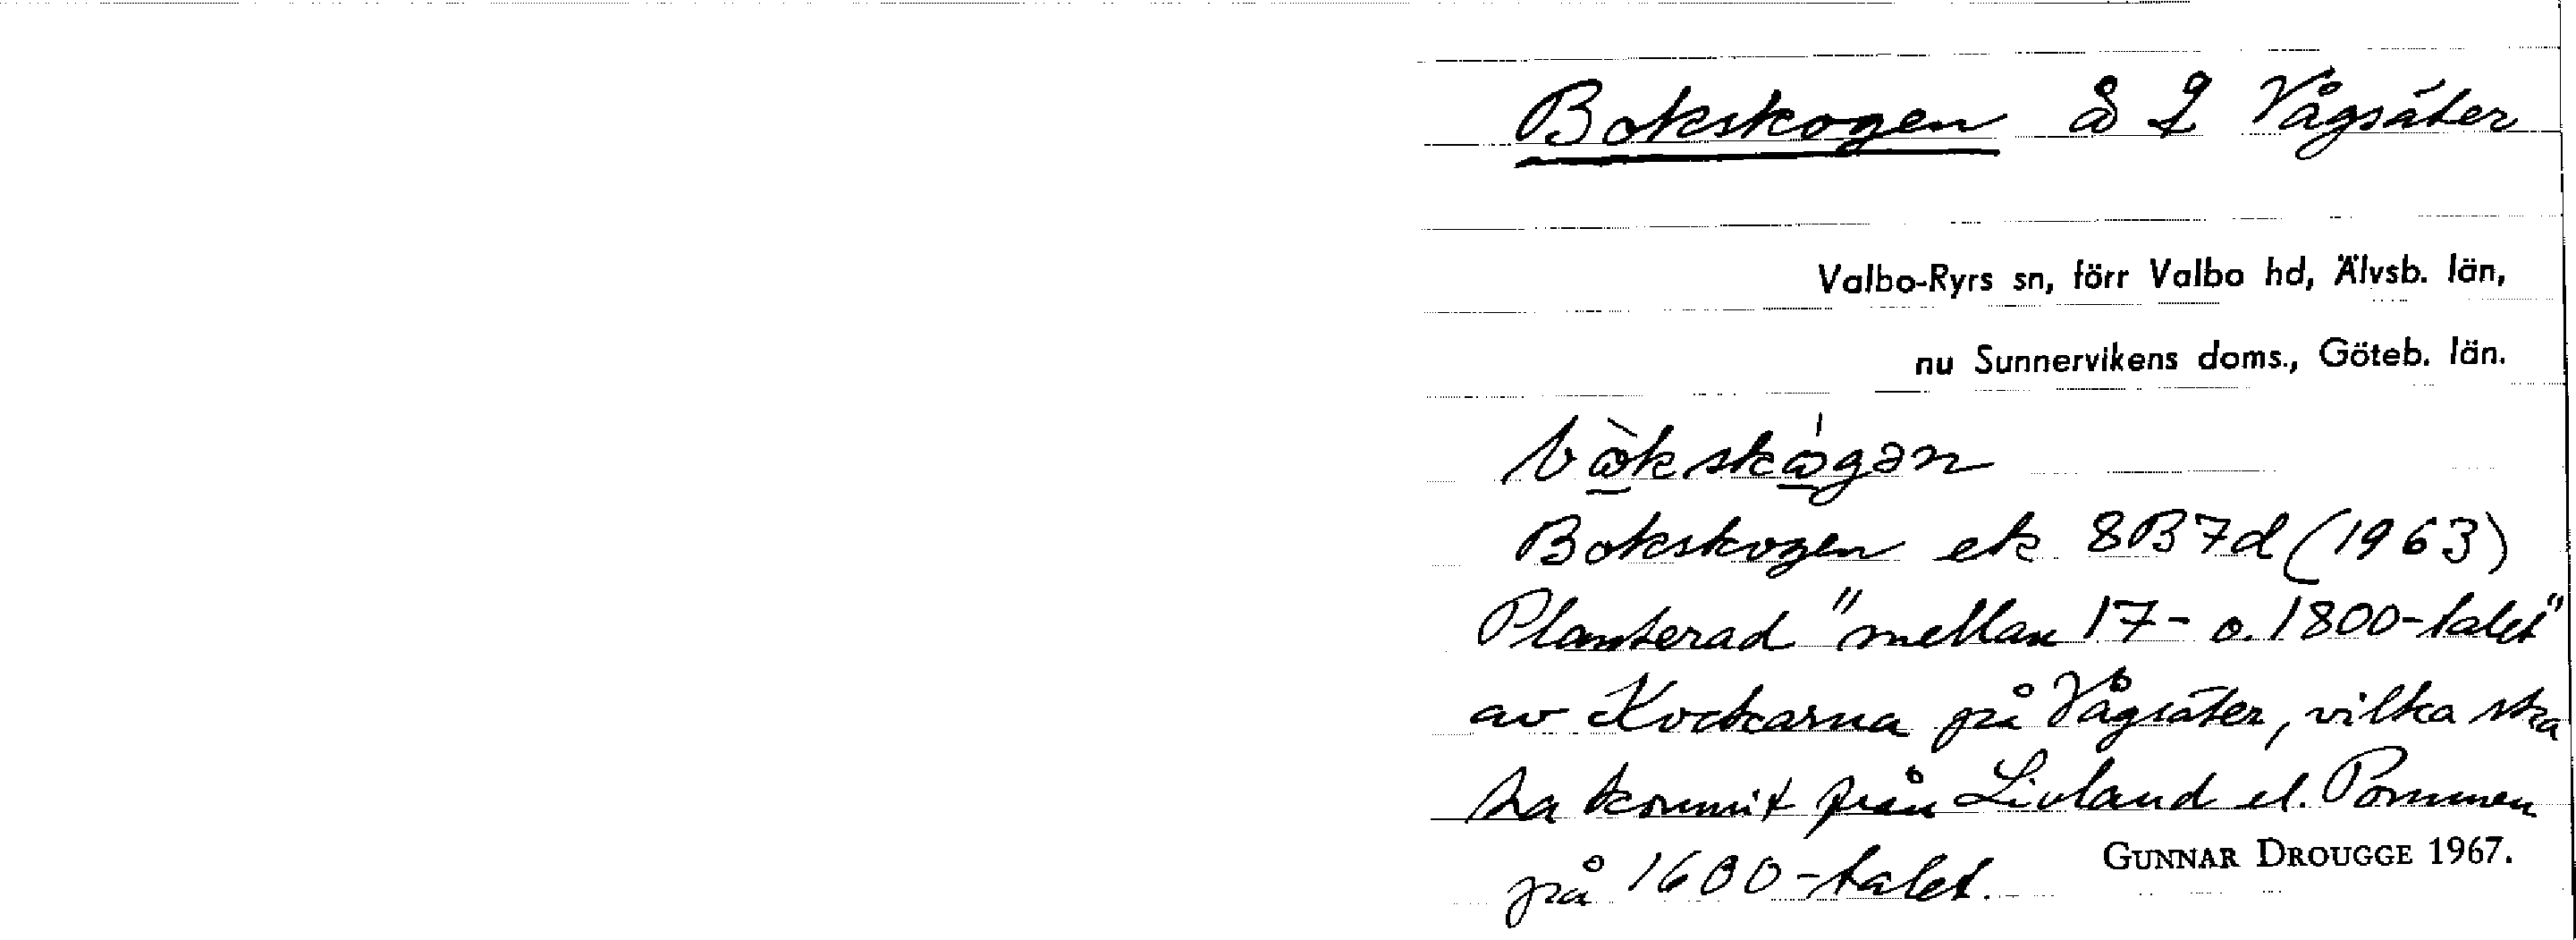 Bokskogen å Vågsäter
Valbo-Ryrs sn, förr Valbo hd, Älvsb. län,
nu Sunnervikens doms., Göteb. län.
Bokskogen ek 8B7d (1963)
Planterad "mellan 17- o. 1800-talet"
av Kockarna på Vågsäter, vilka ska
ha kommit från Livland el. Pommern
på 1600-talet.
GUNNAR DROUGGE 1967.